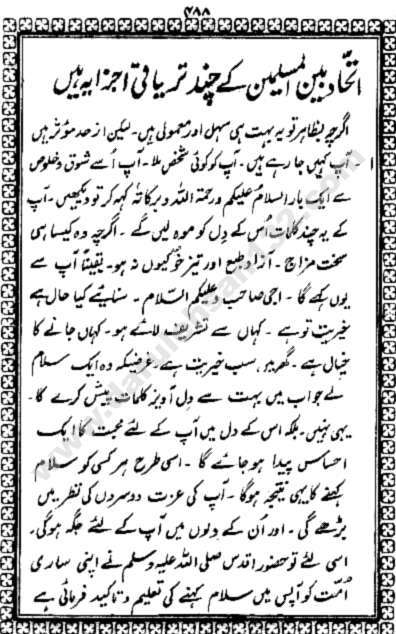 ۴۸۸
اتحاد بین المسلمین کے چند تریاقی اجزا یہ ہیں
اگرچہ بظاہر تو یہ بہت ہی سہل اور معمولی ہیں۔ لیکن از حد مؤثر ہیں
۱ آپ کہیں جا رہے ہیں۔ آپ کو کوئی شخص ملا۔ آپ اُسے شوق و خلوص
سے ایک بار السلام علیکم ورحمۃ اللہ وبرکاتہ کہہ کر تو دیکھیں۔ آپ
کے یہ چند کلمات اُس کے دل کو موہ لیں گے۔ اگرچہ وہ کیسا ہی
سخت مزاج۔ آزاد طبع اور تیز خو کیوں نہ ہو۔ یقیناً آپ سے
یوں کہے گا۔ اجی صاحب وعلیکم السلام۔ سنایئے کیا حال ہے
خیریت تو ہے۔ کہاں سے تشریف لائے ہو۔ کہاں جانے کا
خیال ہے۔ گھر میں سب خیریت ہے۔ غرضیکہ وہ ایک سلام
کے جواب میں بہت سے دل آویز کلمات پیش کرے گا۔
یہی نہیں۔ بلکہ اس کے دل میں آپ کے لئے محبت کا ایک
احساس پیدا ہو جائے گا۔ اسی طرح ہر کسی کو سلام
کہنے کا یہی نتیجہ ہوگا۔ آپ کی عزت دوسروں کی نظر میں
بڑھے گی۔ اور ان کے دلوں میں آپ کے لئے جگہ ہوگی۔
اسی لئے تو حضور اقدس صلی اللہ علیہ وسلم نے اپنی ساری
اُمت کو آپس میں سلام کہنے کی تعلیم و تاکید فرمائی ہے